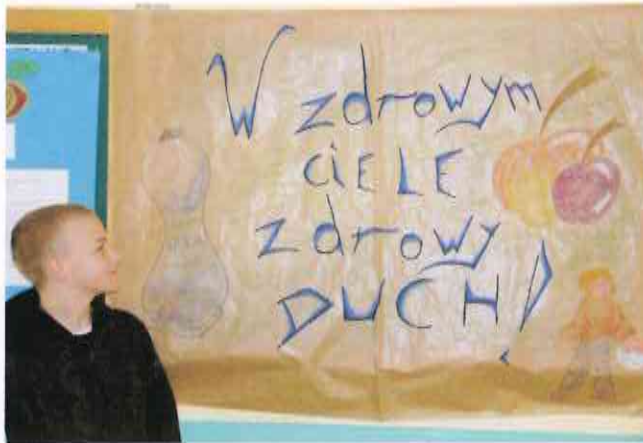 W zdrowym
CiELE
zdrowy
DUCH!